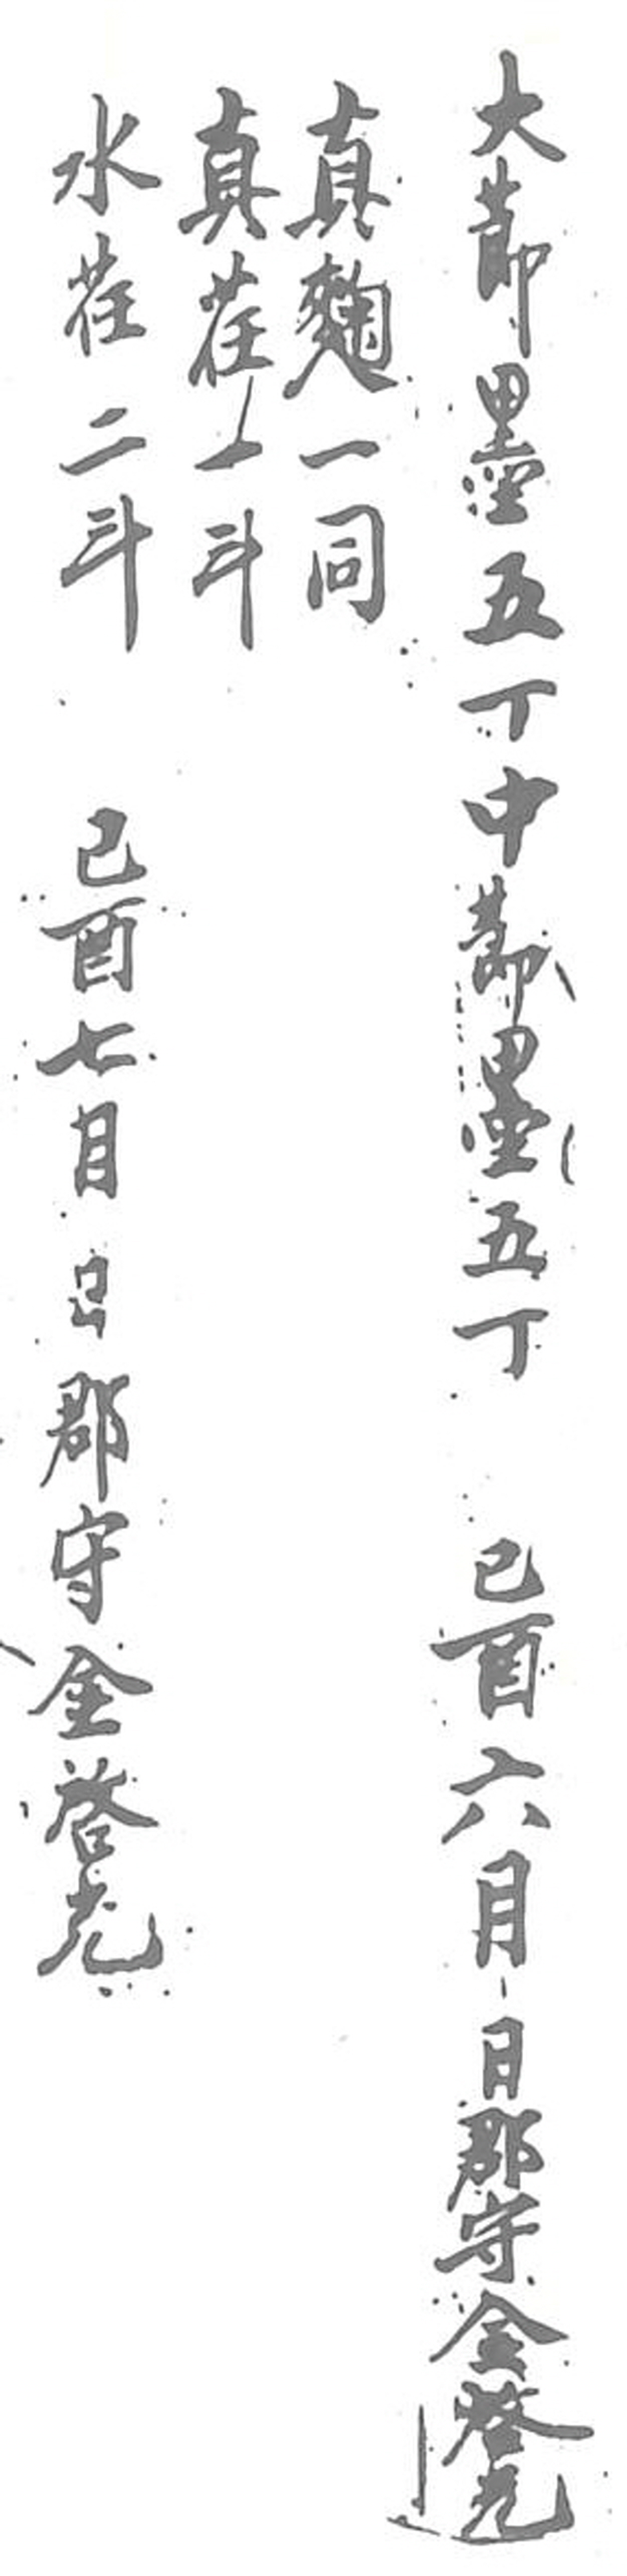 大莭墨五丁中莭墨五丁 己酉六月 日郡守金啓光
真麴一同
真荏一斗
水荏二斗 己酉七月 日郡守金啓光